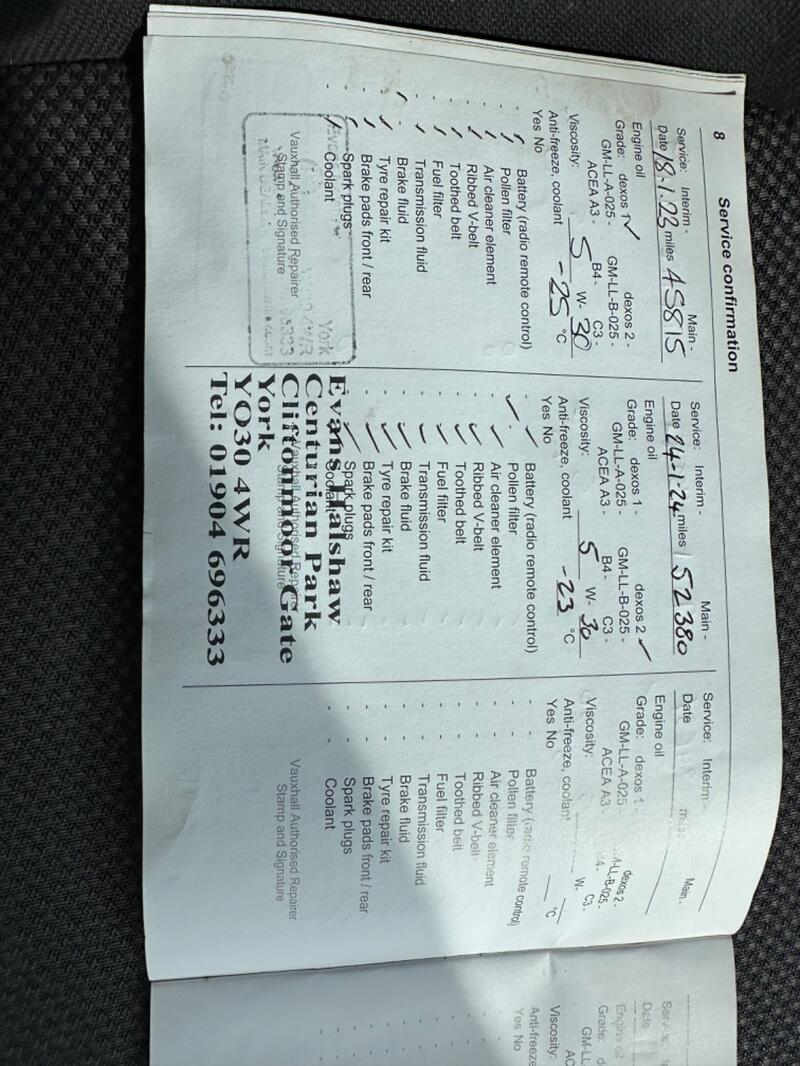 8
Service confirmation
Service: Interim - Main -
Date 18.1.23 miles 45815
Engine oil
Grade: dexos 1 ✓ dexos 2 -
GM-LL-A-025 - GM-LL-B-025 -
ACEA A3 - B4 - C3 -
Viscosity: 5 W- 30
Anti-freeze, coolant -25 °C
Yes No
- ✓ Battery (radio remote control)
- ✓ Pollen filter
- ✓ Air cleaner element
- ✓ Ribbed V-belt
- ✓ Toothed belt
- ✓ Fuel filter
- ✓ Transmission fluid
✓ - Brake fluid
- ✓ Tyre repair kit
- ✓ Brake pads front / rear
- ✓ Spark plugs
- ✓ Coolant
Vauxhall Authorised Repairer
Stamp and Signature
York
Service: Interim - Main -
Date 24-1-24 miles 52380
Engine oil
Grade: dexos 1 - dexos 2 ✓
GM-LL-A-025 - GM-LL-B-025 -
ACEA A3 - B4 - C3 -
Viscosity: 5 W- 30
Anti-freeze, coolant -23 °C
Yes No
- ✓ Battery (radio remote control)
✓ - Pollen filter
- ✓ Air cleaner element
- ✓ Ribbed V-belt
- ✓ Toothed belt
- ✓ Fuel filter
- ✓ Transmission fluid
- ✓ Brake fluid
- ✓ Tyre repair kit
- ✓ Brake pads front / rear
- ✓ Spark plugs
Coolant
Vauxhall Authorised Repairer
Stamp and Signature
Evans Halshaw
Centurian Park
Cliftonmoor Gate
York
YO30 4WR
Tel: 01904 696333
Service: Interim - Main -
Date miles
Engine oil
Grade: dexos 1 - dexos 2 -
GM-LL-A-025 - GM-LL-B-025 -
ACEA A3 - B4 - C3 -
Viscosity: W-
Anti-freeze, coolant °C
Yes No
- - Battery (radio remote control)
- - Pollen filter
- - Air cleaner element
- - Ribbed V-belt
- - Toothed belt
- - Fuel filter
- - Transmission fluid
- - Brake fluid
- - Tyre repair kit
- - Brake pads front / rear
- - Spark plugs
- - Coolant
Vauxhall Authorised Repairer
Stamp and Signature
Service: In
Date
Engine oil
Grade: d
GM-LL-
AC
Viscosity:
Anti-freeze
Yes No